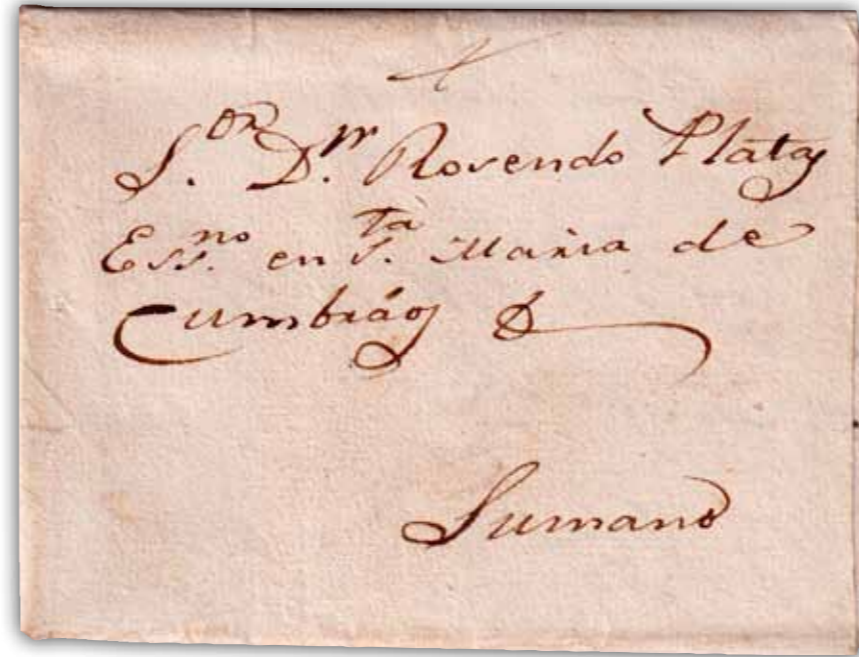 S.or D.n Rosendo Platas
Ess.no en S.ta Maria de
Cumbráos &
Sumano